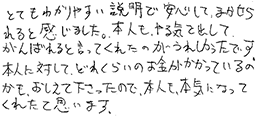 とてもわかりやすい説明で安心して、まかせら
れると感じました。本人も、やる気を出して、
がんばれるといってくれたのがうれしかったです。
本人に対して、どれくらいのお金がかかっているの
かも、おしえて下さったので、本人も、本気になって
くれたと思います。